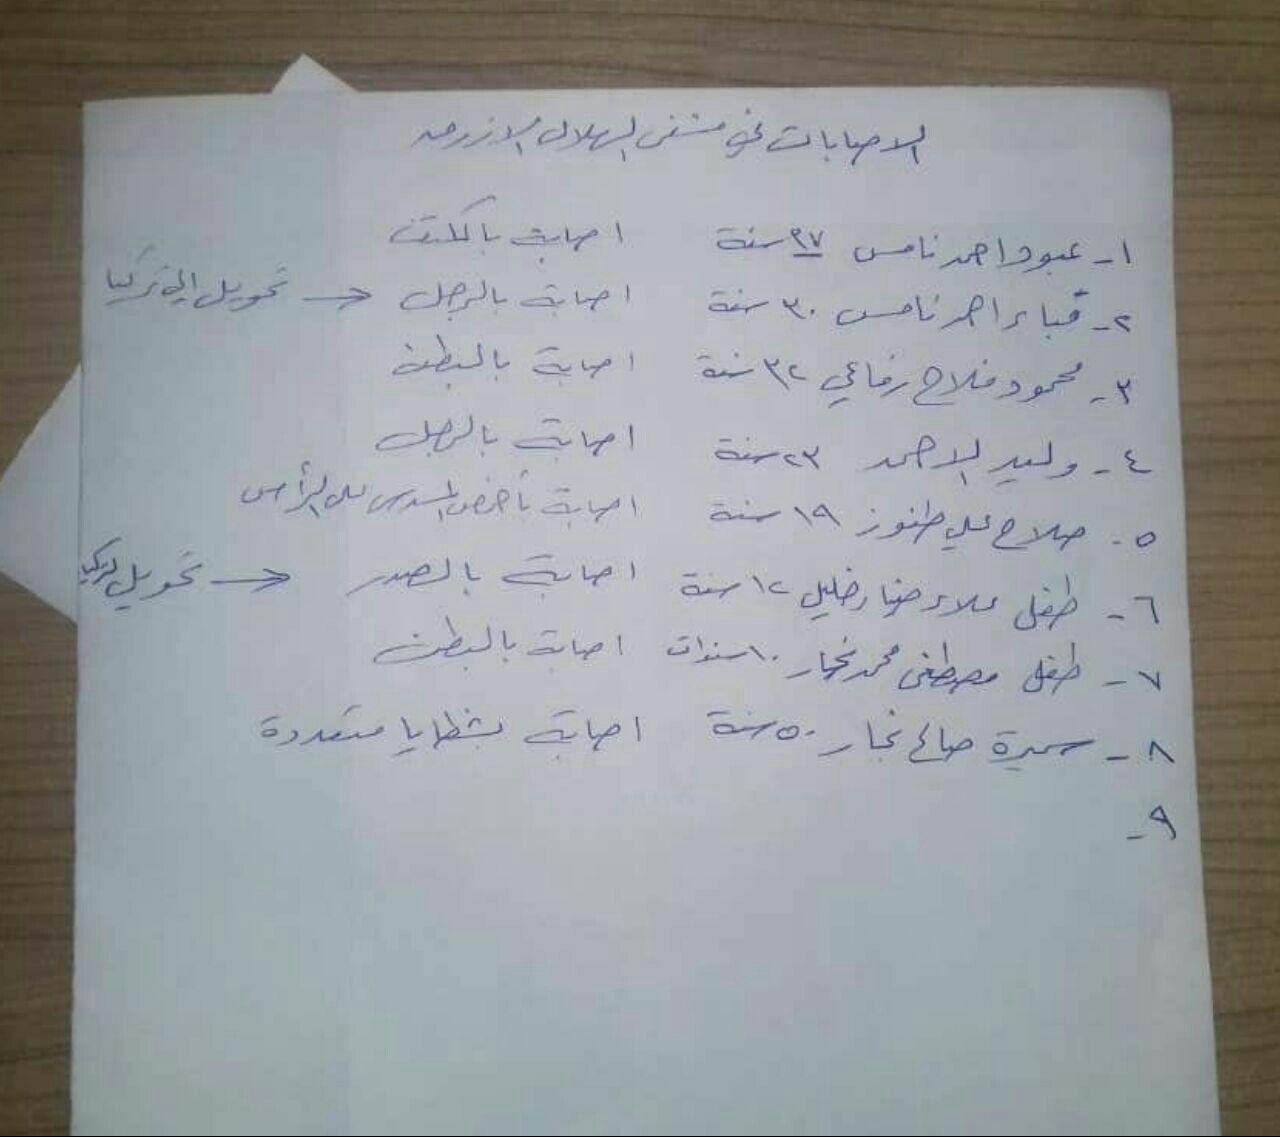 الاصابات في مشفى الهلال الازرق
١- عبود احمد نامس ٢٧ سنة اصابة بالكتف
٢- احمد نامس ٣٠ سنة اصابة بالرجل → تحويل الى تركيا
٣- محمود فلاح رفاعي ٣٢ سنة اصابة بالبطن
٤- وليد الاحمد ٢٣ سنة اصابة بالرجل
٥- صلاح علي طنوز ١٩ سنة اصابة المسدس على الرأس
٦- طفل علاء خليل ١٢ سنة اصابة بالصدر → تحويل لتركيا
٧- طفل مصطفى محمد نجار ١٠ سنوات اصابة بالبطن
٨- سميرة صالح نجار ٥٠ سنة اصابة بشظايا متعددة
٩-